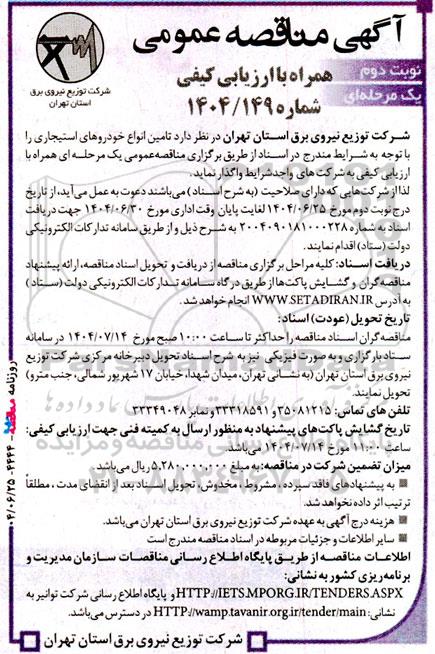 آگهی مناقصه عمومی
نوبت دوم
یک مرحله‌ای
همراه با ارزیابی کیفی
شماره ۱۴۰۴/۱۴۹
شرکت توزیع نیروی برق
استان تهران
شرکت توزیع نیروی برق استان تهران در نظر دارد تامین انواع خودروهای استیجاری را
با توجه به شرایط مندرج در اسناد از طریق برگزاری مناقصه‌عمومی یک مرحله ای همراه با
ارزیابی کیفی به شرکت های واجدشرایط واگذار نماید.
لذا از شرکت‌هایی که دارای صلاحیت (به شرح اسناد) می‌باشند دعوت به عمل می‌آید، از تاریخ
درج نوبت دوم مورخ ۱۴۰۴/۰۶/۲۵ لغایت پایان وقت اداری مورخ ۱۴۰۴/۰۶/۳۰ جهت دریافت
اسناد به شماره ۲۰۰۴۰۹۰۱۸۱۰۰۰۲۲۸ به شرح ذیل و از طریق سامانه تدارکات الکترونیکی
دولت (ستاد) اقدام نمایند.
دریافت اسناد: کلیه مراحل برگزاری مناقصه از دریافت و تحویل اسناد مناقصه، ارائه پیشنهاد
مناقصه گران و گشایش پاکت‌ها از طریق درگاه سامانه تدارکات الکترونیکی دولت (ستاد)
به آدرس WWW.SETADIRAN.IR انجام خواهد شد.
تاریخ تحویل (عودت) اسناد:
مناقصه گران اسناد مناقصه را حداکثر تا ساعت ۱۰:۰۰ صبح مورخ ۱۴۰۴/۰۷/۱۴ در سامانه
ستاد بارگزاری و به صورت فیزیکی نیز به شرح اسناد تحویل دبیرخانه مرکزی شرکت توزیع
نیروی برق استان تهران (به نشانی تهران، میدان شهدا، خیابان ۱۷ شهریور شمالی، جنب مترو)
تحویل نمایند.
تلفن های تماس: ۳۵۰۸۱۲۱۵ و ۳۳۳۱۸۵۹۱ و نمابر ۳۳۳۴۹۰۴۸
تاریخ گشایش پاکت‌های پیشنهاد به منظور ارسال به کمیته فنی جهت ارزیابی کیفی:
ساعت ۱۱:۰۰ مورخ ۱۴۰۴/۰۷/۱۴ می‌باشد.
میزان تضمین شرکت در مناقصه: به مبلغ ۵,۲۸۰,۰۰۰,۰۰۰ ریال می‌باشد.
به پیشنهادهای فاقد سپرده، مشروط، مخدوش، تحویل اسناد بعد از انقضای مدت، مطلقاً
ترتیب اثر داده نخواهد شد.
هزینه درج آگهی به عهده شرکت توزیع نیروی برق استان تهران می‌باشد.
سایر اطلاعات و جزئیات مربوطه در اسناد مناقصه مندرج است
اطلاعات مناقصه از طریق پایگاه اطلاع رسانی مناقصات سازمان مدیریت و
برنامه‌ریزی کشور به نشانی:
HTTP://IETS.MPORG.IR/TENDERS.ASPX و پایگاه اطلاع رسانی شرکت توانیر به
نشانی: HTTP://wamp.tavanir.org.ir/tender/main در دسترس می‌باشد.
شرکت توزیع نیروی برق استان تهران
روزنامه مناقصه - ۴۴۴۴ - ۰۴/۰۶/۲۵